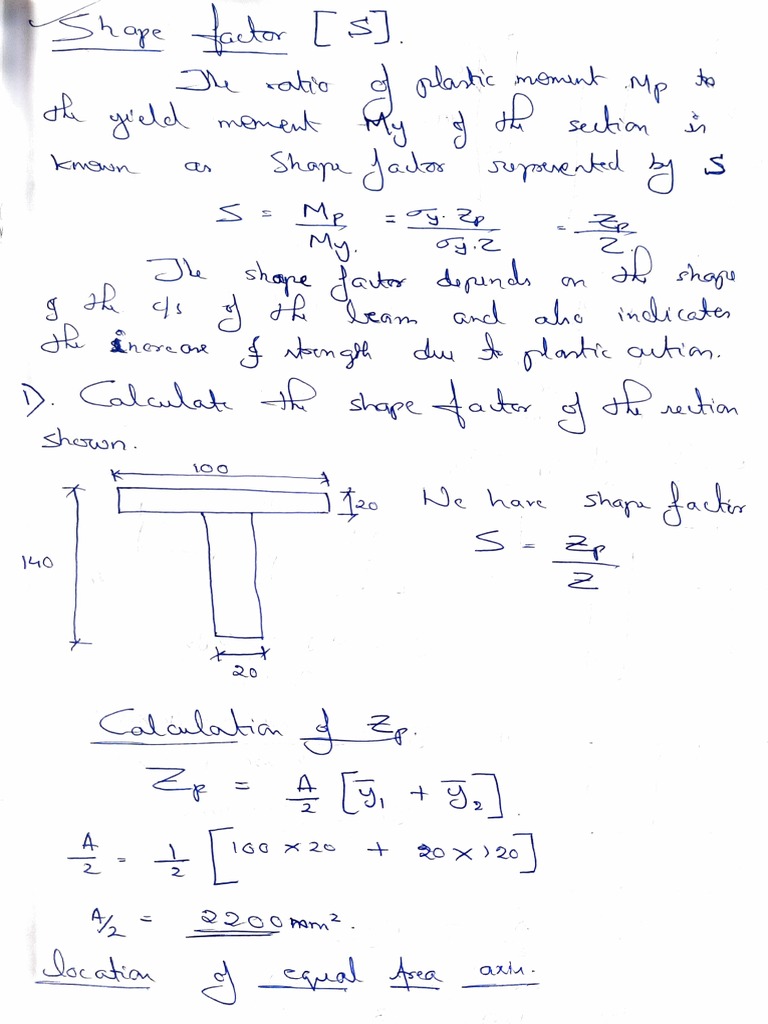 Shape factor [S].
The ratio of plastic moment Mp to
the yield moment My of the section is
known as Shape factor represented by S
S = Mp/My. = σy. Zp/σy. Z = Zp/Z.
The shape factor depends on the shape
of the c/s of the beam and also indicates
the increase of strength due to plastic action.
1). Calculate the shape factor of the section
shown.
100
20
We have shape factor
S = Zp/Z
140
20
Calculation of Zp.
Zp = A/2 [ȳ1 + ȳ2].
A/2 = 1/2 [100 × 20 + 20 × 120]
A/2 = 2200 mm².
location of equal Area axis.